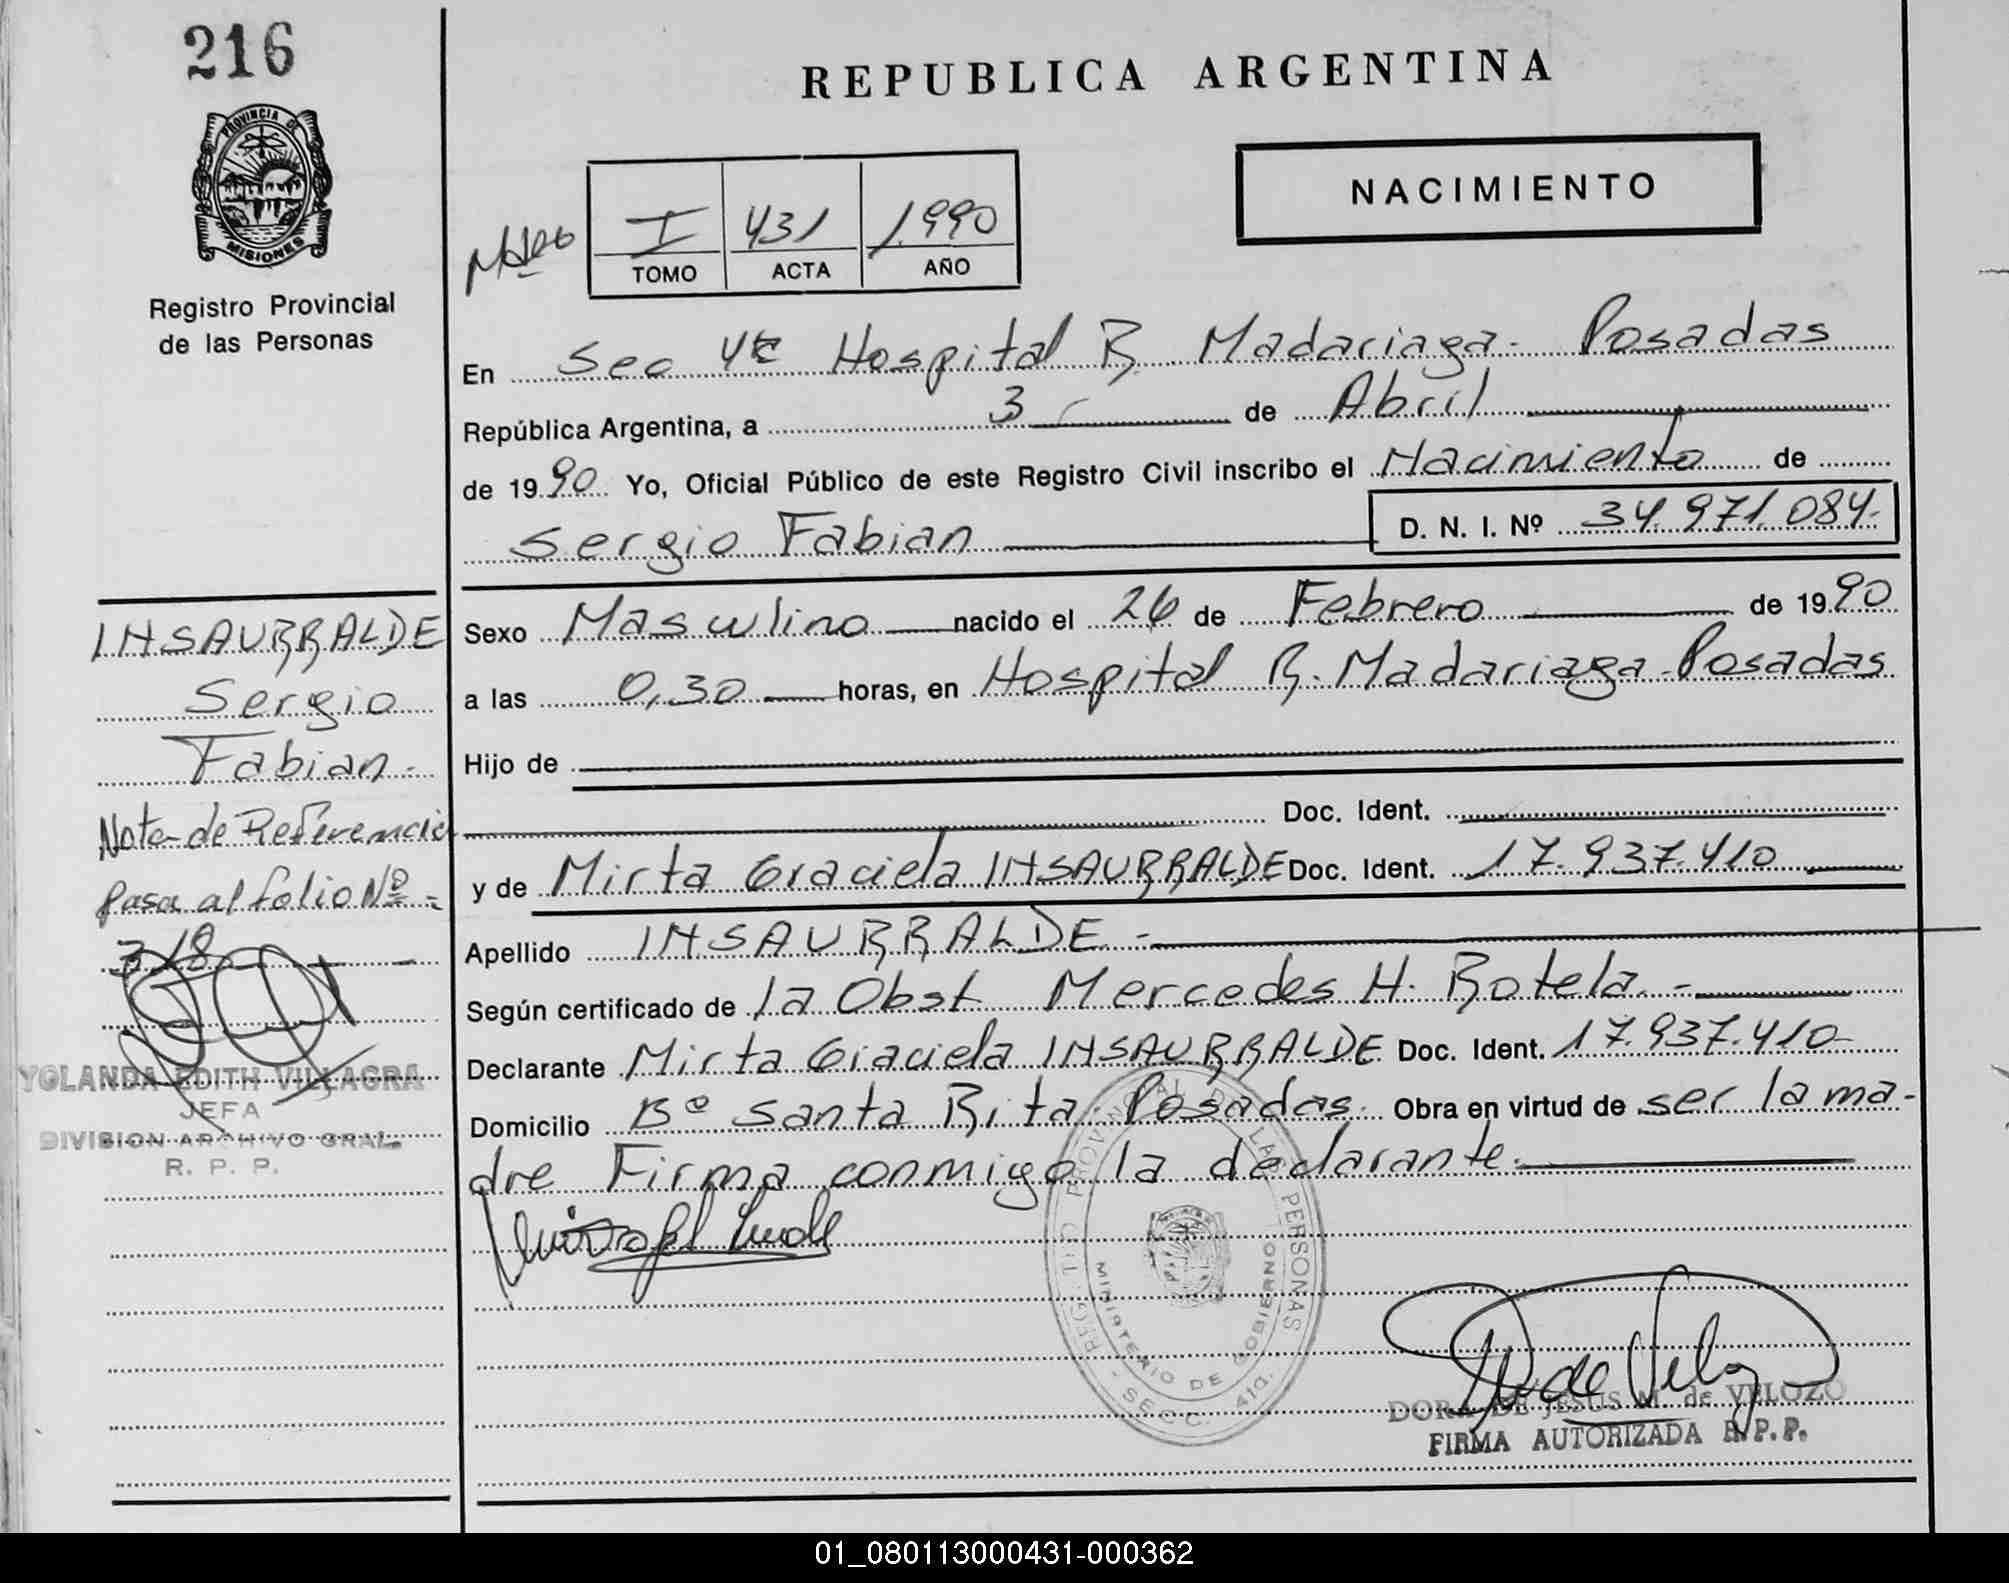 216
REPUBLICA ARGENTINA
PROVINCIA DE
MISIONES
Registro Provincial
de las Personas
NACIMIENTO
I 431 1.990
TOMO ACTA AÑO
En Sec 4ta Hospital R. Madariaga - Posadas
República Argentina, a 3 de Abril
de 1990 Yo, Oficial Público de este Registro Civil inscribo el Nacimiento de
Sergio Fabian D. N. I. Nº 34.971.084.
Sexo Masculino nacido el 26 de Febrero de 1990
a las 0,30 horas, en Hospital R. Madariaga - Posadas
Hijo de
Doc. Ident.
y de Mirta Graciela INSAURRALDE Doc. Ident. 17.937.410
Apellido INSAURRALDE.-
Según certificado de la Obst. Mercedes H. Rotela.-
Declarante Mirta Graciela INSAURRALDE Doc. Ident. 17.937.410-
Domicilio Bº Santa Rita. Posadas. Obra en virtud de ser la ma-
dre Firma conmigo la declarante.
INSAURRALDE
Sergio
Fabian.-
Nota de Referencia
pasa al folio Nº -
318
YOLANDA EDITH VILLAGRA
JEFA
DIVISION ARCHIVO GRAL.
R. P. P.
REGISTRO PROVINCIAL DE LAS PERSONAS
MINISTERIO DE GOBIERNO
- SECC. 4ta.
DORA DE JESUS M. de VELOZO
FIRMA AUTORIZADA R.P.P.
01_080113000431-000362